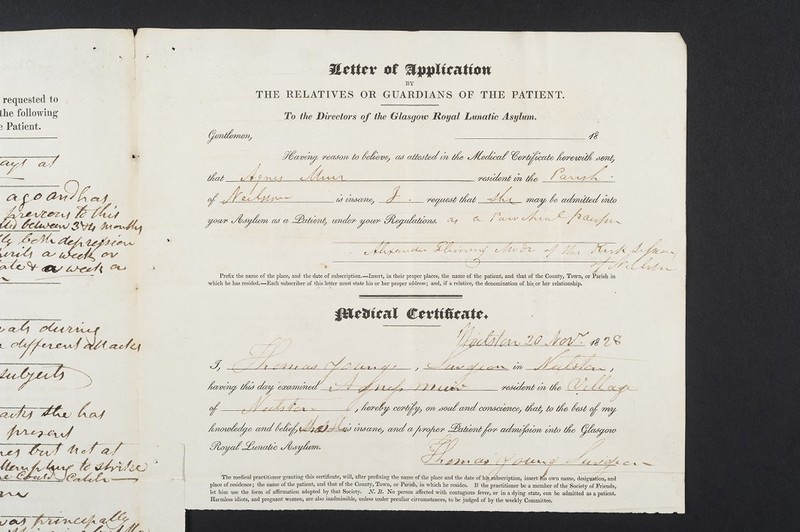 requested to
the following
Patient.
ays at
ago and has
previous to this
between 3 & 4 months
both depression
a week or
a week a
during
different attacks
subjects
she has
present
but not at
attempting to strike
could catch
was principally
Letter of Application
BY
THE RELATIVES OR GUARDIANS OF THE PATIENT.
To the Directors of the Glasgow Royal Lunatic Asylum.
Gentlemen, 18
Having reason to believe, as attested in the Medical Certificate herewith sent,
that Agnes Muir resident in the Parish
of Neilston is insane, I request that She may be admitted into
your Asylum as a Patient, under your Regulations. as a Parochial pauper
Alexander Fleming Modr of the Kirk Session
of Neilston
Prefix the name of the place, and the date of subscription.—Insert, in their proper places, the name of the patient, and that of the County, Town, or Parish in
which he has resided.—Each subscriber of this letter must state his or her proper address; and, if a relative, the denomination of his or her relationship.
Medical Certificate.
Neilston 20 Novr 1828
I, Thomas Young, Surgeon in Neilston,
having this day examined Agness Muir resident in the Village
of Neilston, hereby certify, on soul and conscience, that, to the best of my
knowledge and belief, She is insane, and a proper Patient for admission into the Glasgow
Royal Lunatic Asylum.
Thomas Young Surgeon
The medical practitioner granting this certificate, will, after prefixing the name of the place and the date of his subscription, insert his own name, designation, and
place of residence; the name of the patient, and that of the County, Town, or Parish, in which he resides. If the practitioner be a member of the Society of Friends,
let him use the form of affirmation adopted by that Society. N. B. No person affected with contagious fever, or in a dying state, can be admitted as a patient.
Harmless idiots, and pregnant women, are also inadmissible, unless under peculiar circumstances, to be judged of by the weekly Committee.